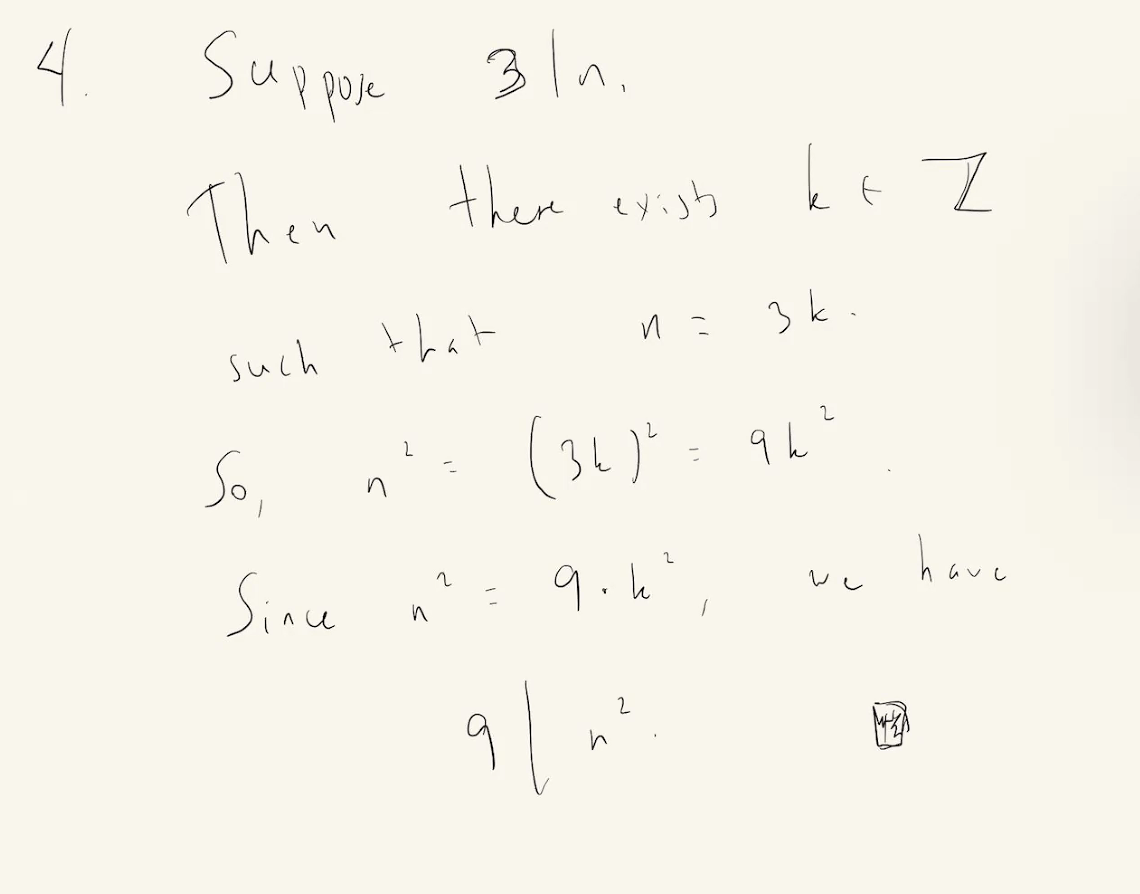 4. Suppose 3|n.
Then there exists k ∈ ℤ
such that n = 3k.
So, n² = (3k)² = 9k².
Since n² = 9·k², we have
9 | n².